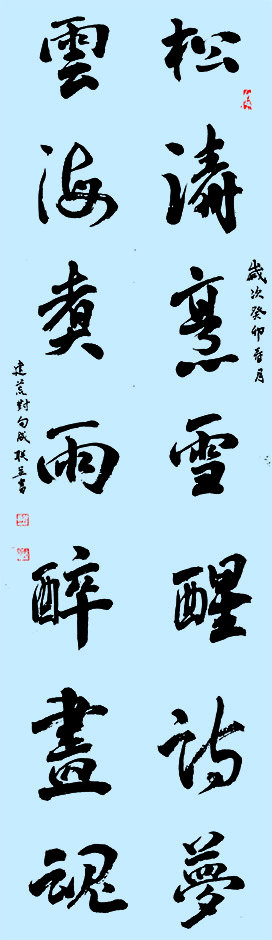 歲次癸卯春月
松濤烹雪醒詩夢
雲海煮雨醉畫魂
建荒對句成联並書